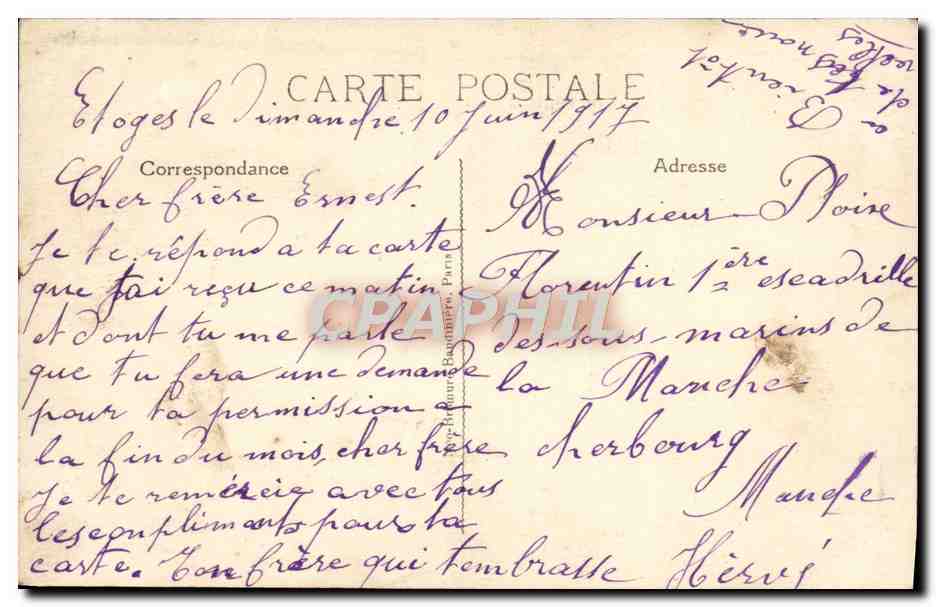 CARTE POSTALE
Etoges le Dimandre 10 Juin 1917
Correspondance
Cher frère Ernest.
Je te répond a ta carte
que jai reçu ce matin
et dont tu me parle
que tu fera une demande
pour ta permission a
la fin du mois, cher frère
Je te remércie avec tous
les compliments pour ta
carte. Ton frère qui tembrasse Hérvé
Adresse
Monsieur Ploix
Florentin 1ère escadrille
des sous-marins de
la Manche
cherbourg
Manche
a Bientôt
de tes nouvelles
Bandinière, Paris
CRAPHIL